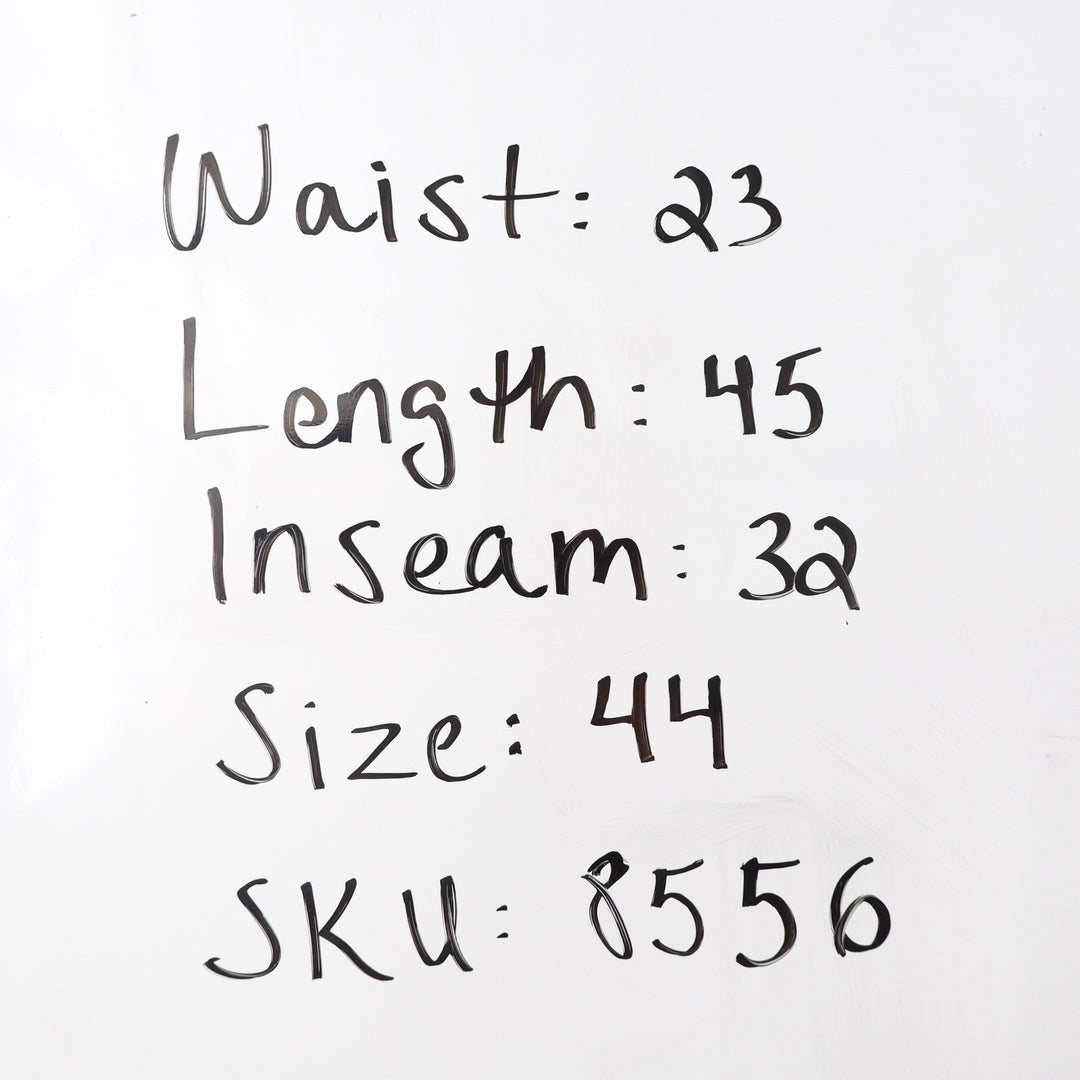 Waist: 23
Length: 45
Inseam: 32
Size: 44
SKU: 8556